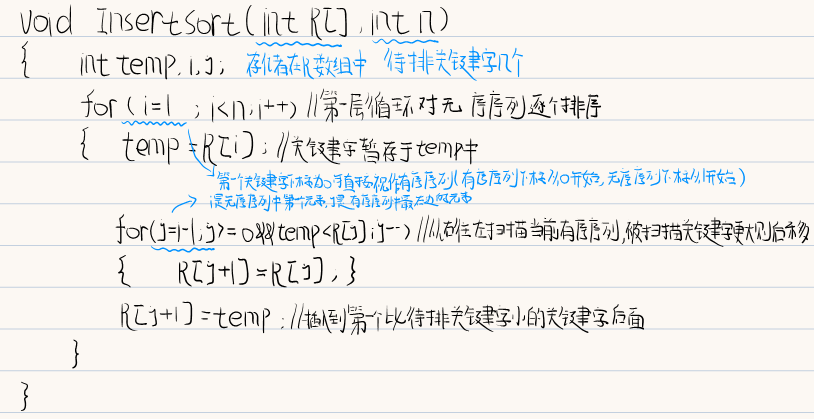 void InsertSort(int R[],int n)
{ int temp,i,j; 存储在R数组中 待排关键字几个
for(i=1;i<n;i++) //第一层循环对无序序列逐个排序
{ temp=R[i]; //关键字暂存于temp中
第一个关键字下标为0可直接视作有序序列(有序序列下标从0开始,无序序列下标从1开始)
是无序序列中第一个元素,是有序序列中最右边的元素
for(j=i-1;j>=0&&temp<R[j];j--) //从右往左扫描当前有序序列,被扫描关键字更大则后移
{ R[j+1]=R[j]; }
R[j+1]=temp; //插到第一个比待排关键字小的关键字后面
}
}